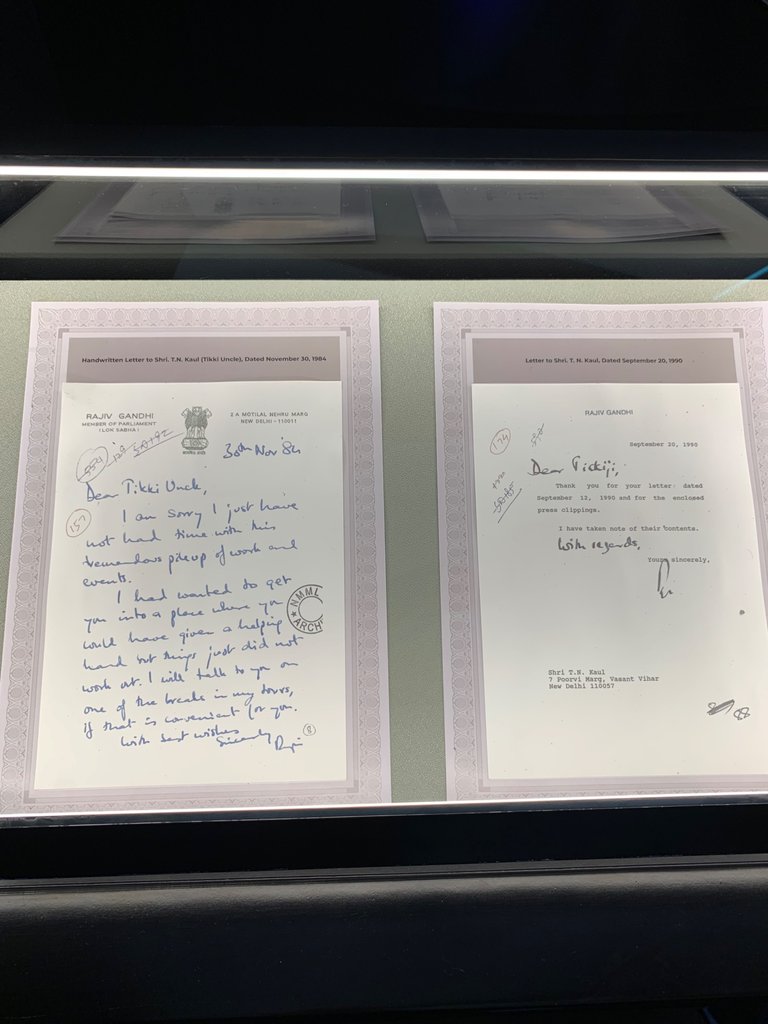 Handwritten Letter to Shri. T.N. Kaul (Tikki Uncle), Dated November 30, 1984
RAJIV GANDHI
MEMBER OF PARLIAMENT
(LOK SABHA)
2 A MOTILAL NEHRU MARG
NEW DELHI-110011
30th Nov '84
Dear Tikki Uncle,
157
I am sorry I just have
not had time with this
tremendous pile up of work and
events.
I had wanted to get
you into a place where you
could have given a helping
hand but things just did not
work out. I will talk to you on
one of the breaks in my tours,
if that is convenient for you.
With best wishes
Sincerely
NMML
ARCH
8
Letter to Shri. T. N. Kaul, Dated September 20, 1990
RAJIV GANDHI
174
September 20, 1990
Dear Tikkiji,
Thank you for your letter dated
September 12, 1990 and for the enclosed
press clippings.
I have taken note of their contents.
With regards,
Yours sincerely,
Shri T.N. Kaul
7 Poorvi Marg, Vasant Vihar
New Delhi 110057